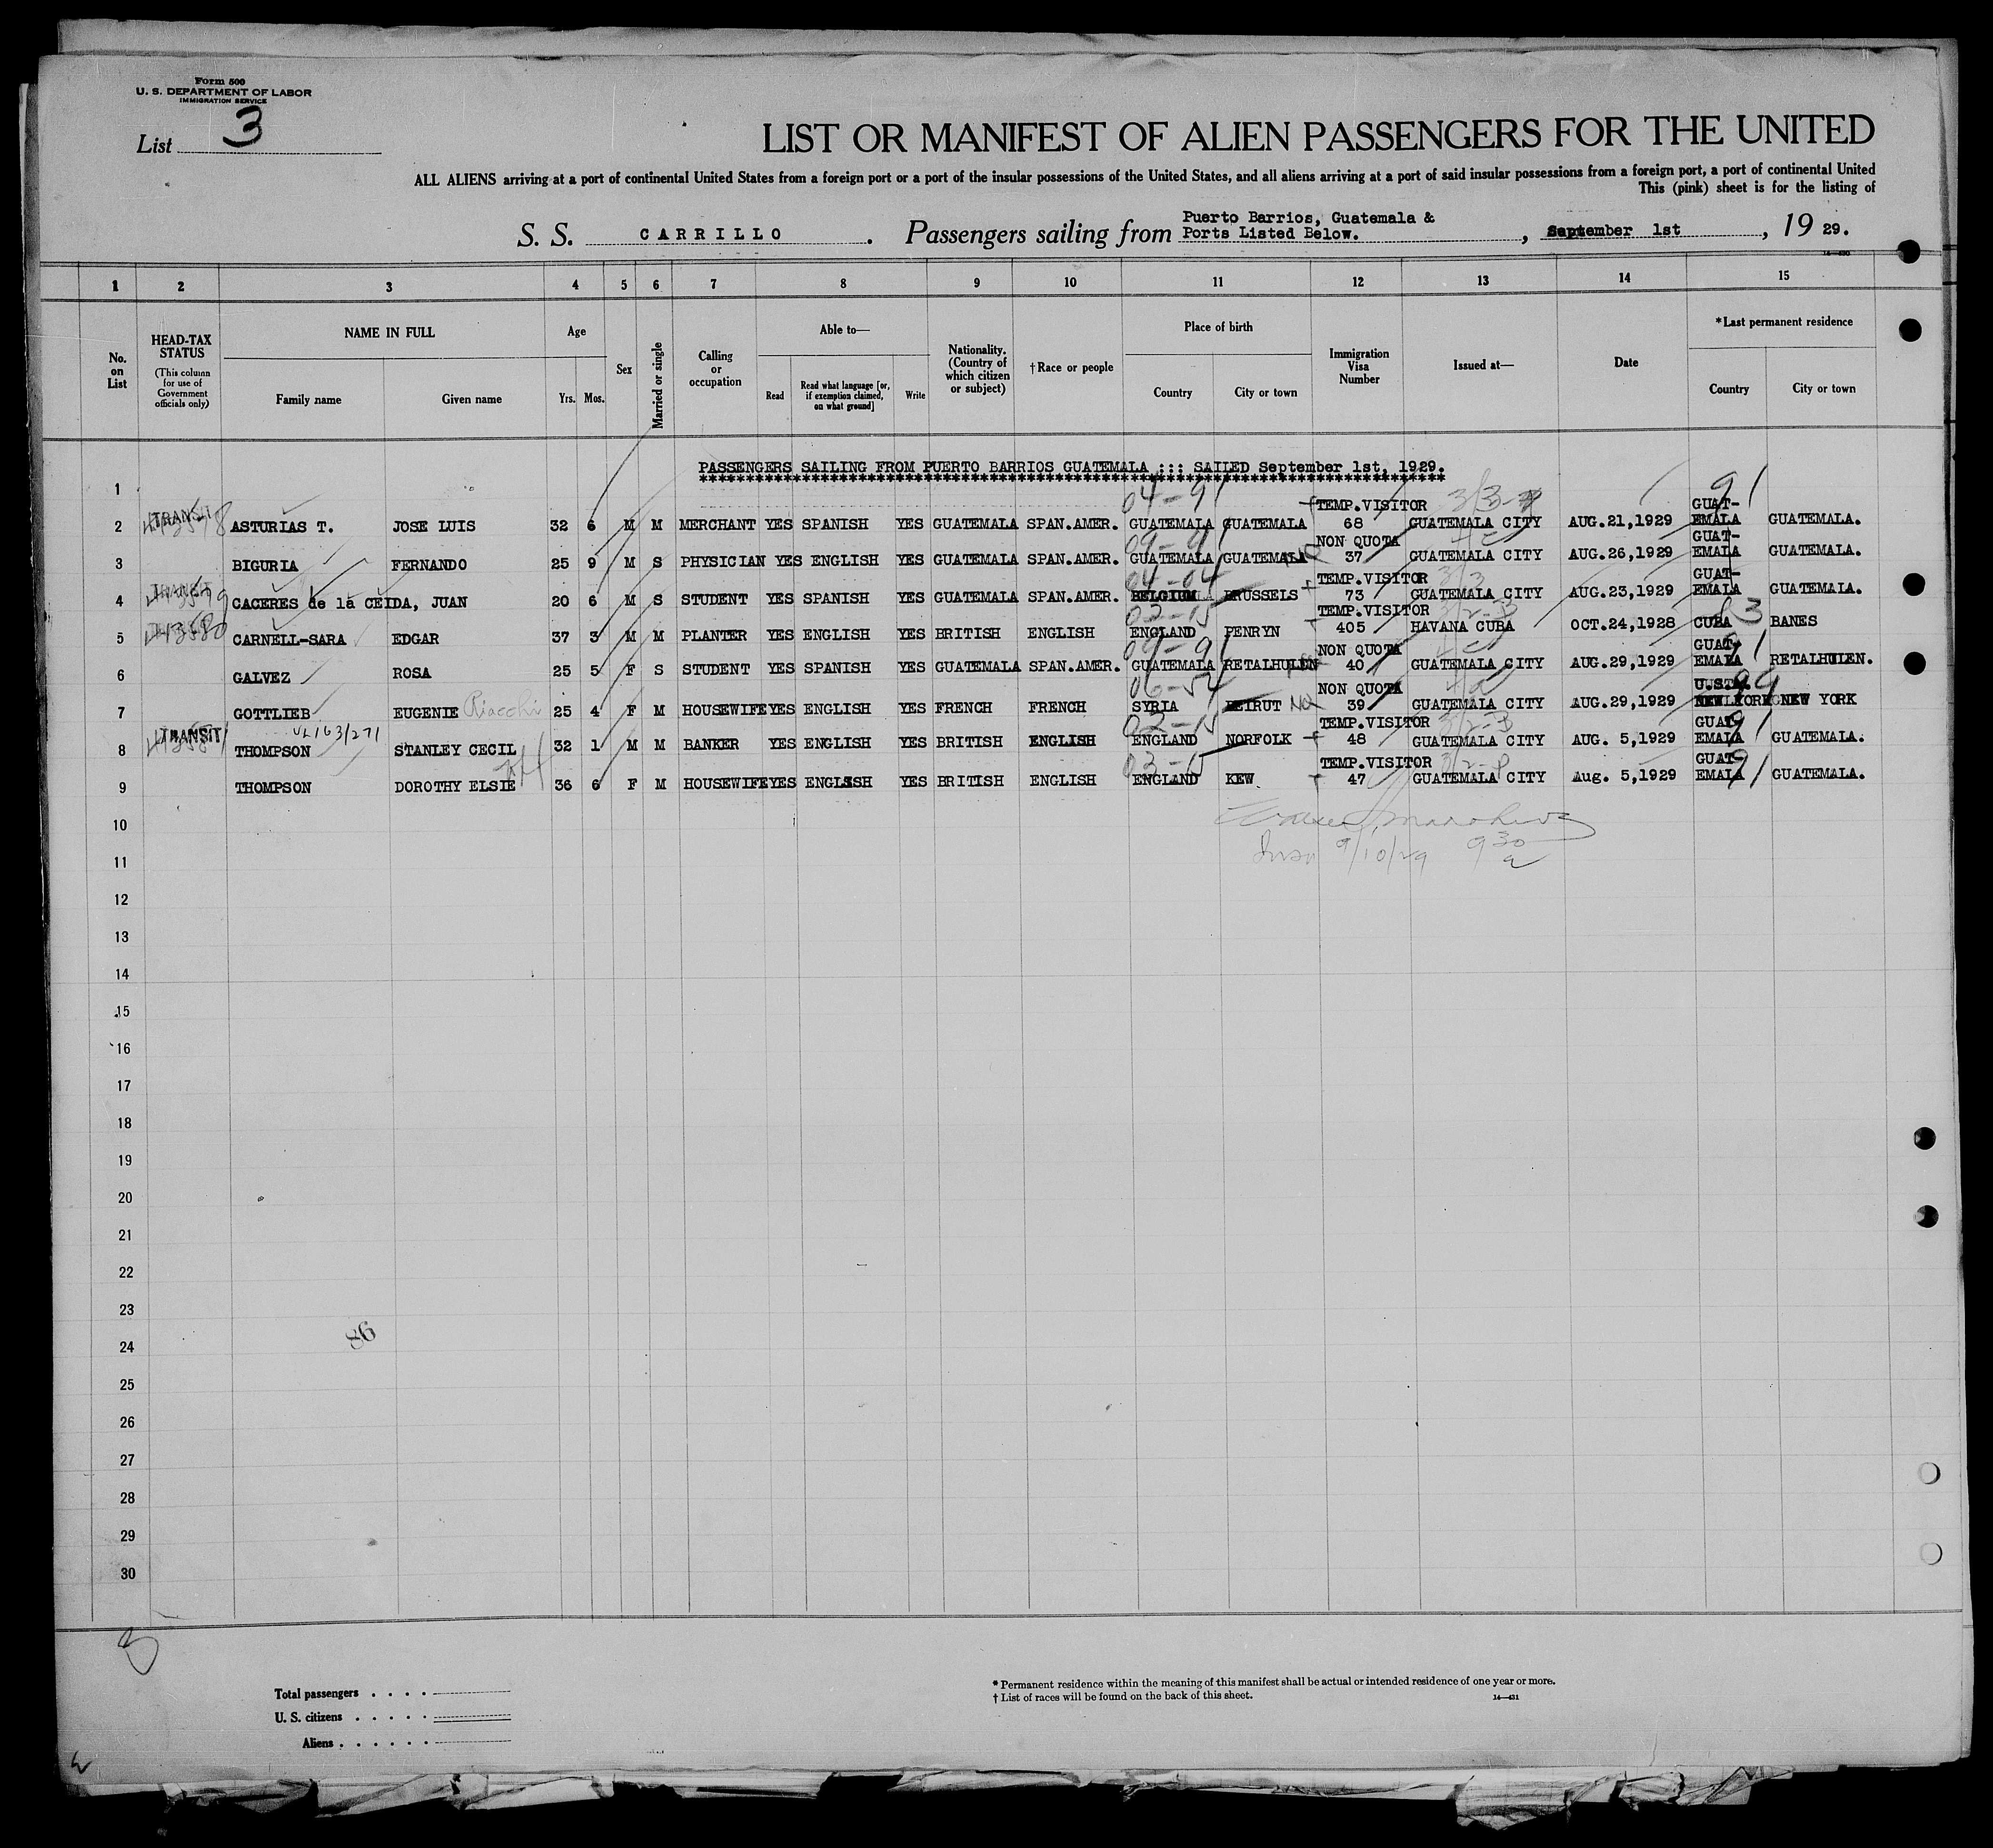 Form 500
U. S. DEPARTMENT OF LABOR
IMMIGRATION SERVICE
List 3
LIST OR MANIFEST OF ALIEN PASSENGERS FOR THE UNITED
ALL ALIENS arriving at a port of continental United States from a foreign port or a port of the insular possessions of the United States, and all aliens arriving at a port of said insular possessions from a foreign port, a port of continental United
This (pink) sheet is for the listing of
S. S. CARRILLO . Passengers sailing from Puerto Barrios, Guatemala &
Ports Listed Below. , September 1st , 19 29.
14—430
1 2 3 4 5 6 7 8 9 10 11 12 13 14 15
No. on List
HEAD-TAX STATUS (This column for use of Government officials only)
NAME IN FULL
Family name Given name
Age
Yrs. Mos.
Sex
Married or single
Calling or occupation
Able to—
Read
Read what language [or, if exemption claimed, on what ground]
Write
Nationality. (Country of which citizen or subject)
†Race or people
Place of birth
Country City or town
Immigration Visa Number
Issued at—
Date
*Last permanent residence
Country City or town
PASSENGERS SAILING FROM PUERTO BARRIOS GUATEMALA ::: SAILED September 1st, 1929.
*****************************************************************
1
04-91 3/3 91
2 TRANSIT ASTURIAS T. JOSE LUIS 32 6 M M MERCHANT YES SPANISH YES GUATEMALA SPAN.AMER. GUATEMALA GUATEMALA TEMP.VISITOR 68 GUATEMALA CITY AUG.21,1929 GUAT-EMALA GUATEMALA.
09-91
3 BIGURIA FERNANDO 25 9 M S PHYSICIAN YES ENGLISH YES GUATEMALA SPAN.AMER. GUATEMALA GUATEMALA NON QUOTA 37 GUATEMALA CITY AUG.26,1929 GUAT-EMALA GUATEMALA.
04-04 3/3
4 TRANSIT CACERES de la CEIDA, JUAN 20 6 M S STUDENT YES SPANISH YES GUATEMALA SPAN.AMER. BELGIUM BRUSSELS TEMP.VISITOR 73 GUATEMALA CITY AUG.23,1929 GUAT-EMALA GUATEMALA.
03-15
5 CARNELL-SARA EDGAR 37 3 M M PLANTER YES ENGLISH YES BRITISH ENGLISH ENGLAND PENRYN TEMP.VISITOR 405 HAVANA CUBA OCT.24,1928 CUBA BANES
09-91 91
6 GALVEZ ROSA 25 5 F S STUDENT YES SPANISH YES GUATEMALA SPAN.AMER. GUATEMALA RETALHULEN NON QUOTA 40 GUATEMALA CITY AUG.29,1929 GUAT-EMALA RETALHULEN.
06-54 99
7 GOTTLIEB EUGENIE 25 4 F M HOUSEWIFE YES ENGLISH YES FRENCH FRENCH SYRIA BEIRUT NQ NON QUOTA 39 GUATEMALA CITY AUG.29,1929 U.S.A. NEW YORK NEW YORK
VL163/271 91
8 TRANSIT THOMPSON STANLEY CECIL 32 1 M M BANKER YES ENGLISH YES BRITISH ENGLISH ENGLAND NORFOLK TEMP.VISITOR 48 GUATEMALA CITY AUG. 5,1929 GUAT-EMALA GUATEMALA.
03-15 91
9 THOMPSON DOROTHY ELSIE 36 6 F M HOUSEWIFE YES ENGLISH YES BRITISH ENGLISH ENGLAND KEW TEMP.VISITOR 47 GUATEMALA CITY Aug. 5,1929 GUAT-EMALA GUATEMALA.
10
11 9/10/29 9 30 a
12
13
14
15
16
17
18
19
20
21
22
23
86
24
25
26
27
28
29
30
3
Total passengers
U. S. citizens
Aliens
* Permanent residence within the meaning of this manifest shall be actual or intended residence of one year or more.
† List of races will be found on the back of this sheet.
14—431